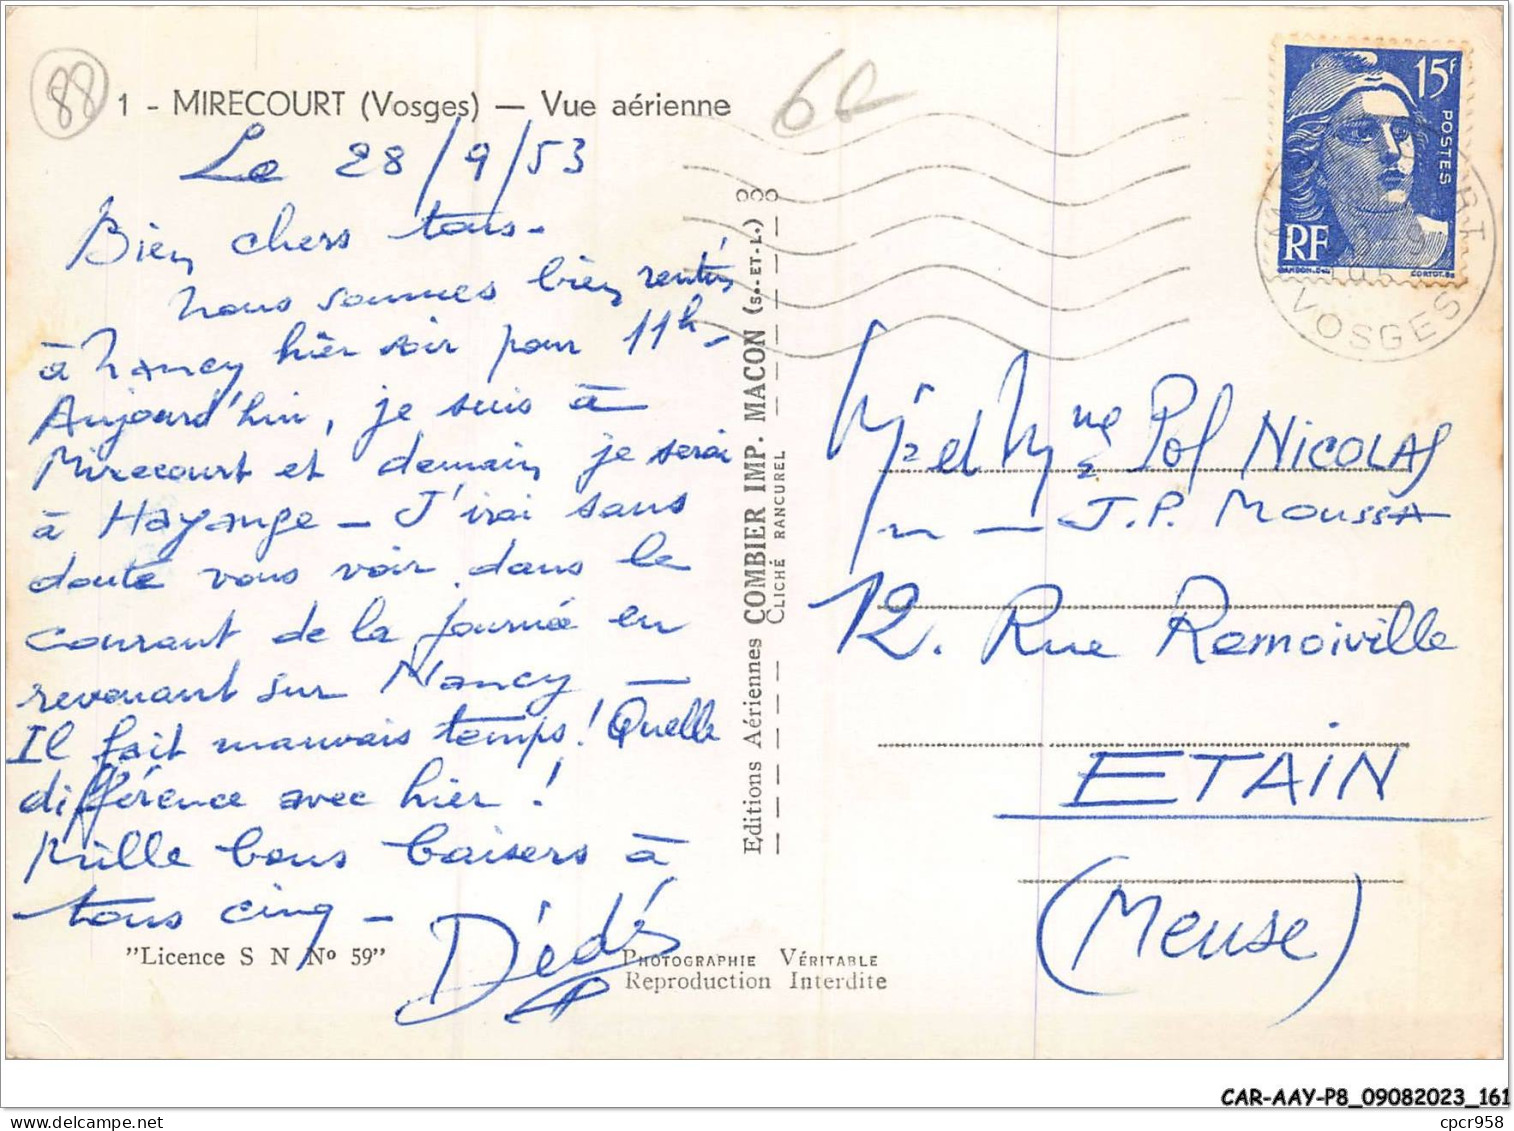 88
1 - MIRECOURT (Vosges) — Vue aérienne
6e
Le 28/9/53
Bien chers tous-
nous sommes bien rentrés
à Nancy hier soir pour 11h-
Aujourd'hui, je suis à
Mirecourt et demain je serai
à Hayange - J'irai sans
doute vous voir dans le
courant de la journée en
revenant sur Nancy -
Il fait mauvais temps! Quelle
différence avec hier!
Mille bons baisers à
tous cinq -
Dédé
"Licence S N No 59"
PHOTOGRAPHIE VÉRITABLE
Reproduction Interdite
Editions Aériennes COMBIER IMP. MACON (S.-ET-L.)
CLICHÉ RANCUREL
15F
POSTES
RF
GANDON.DEL
CORTOT.SC
VOSGES
Mr et Mme Pol NICOLAS
J.P. MOUSSA
12. Rue Remoiville
ETAIN
(Meuse)
CAR-AAY-P8_09082023_161
delcampe.net
cpcr958